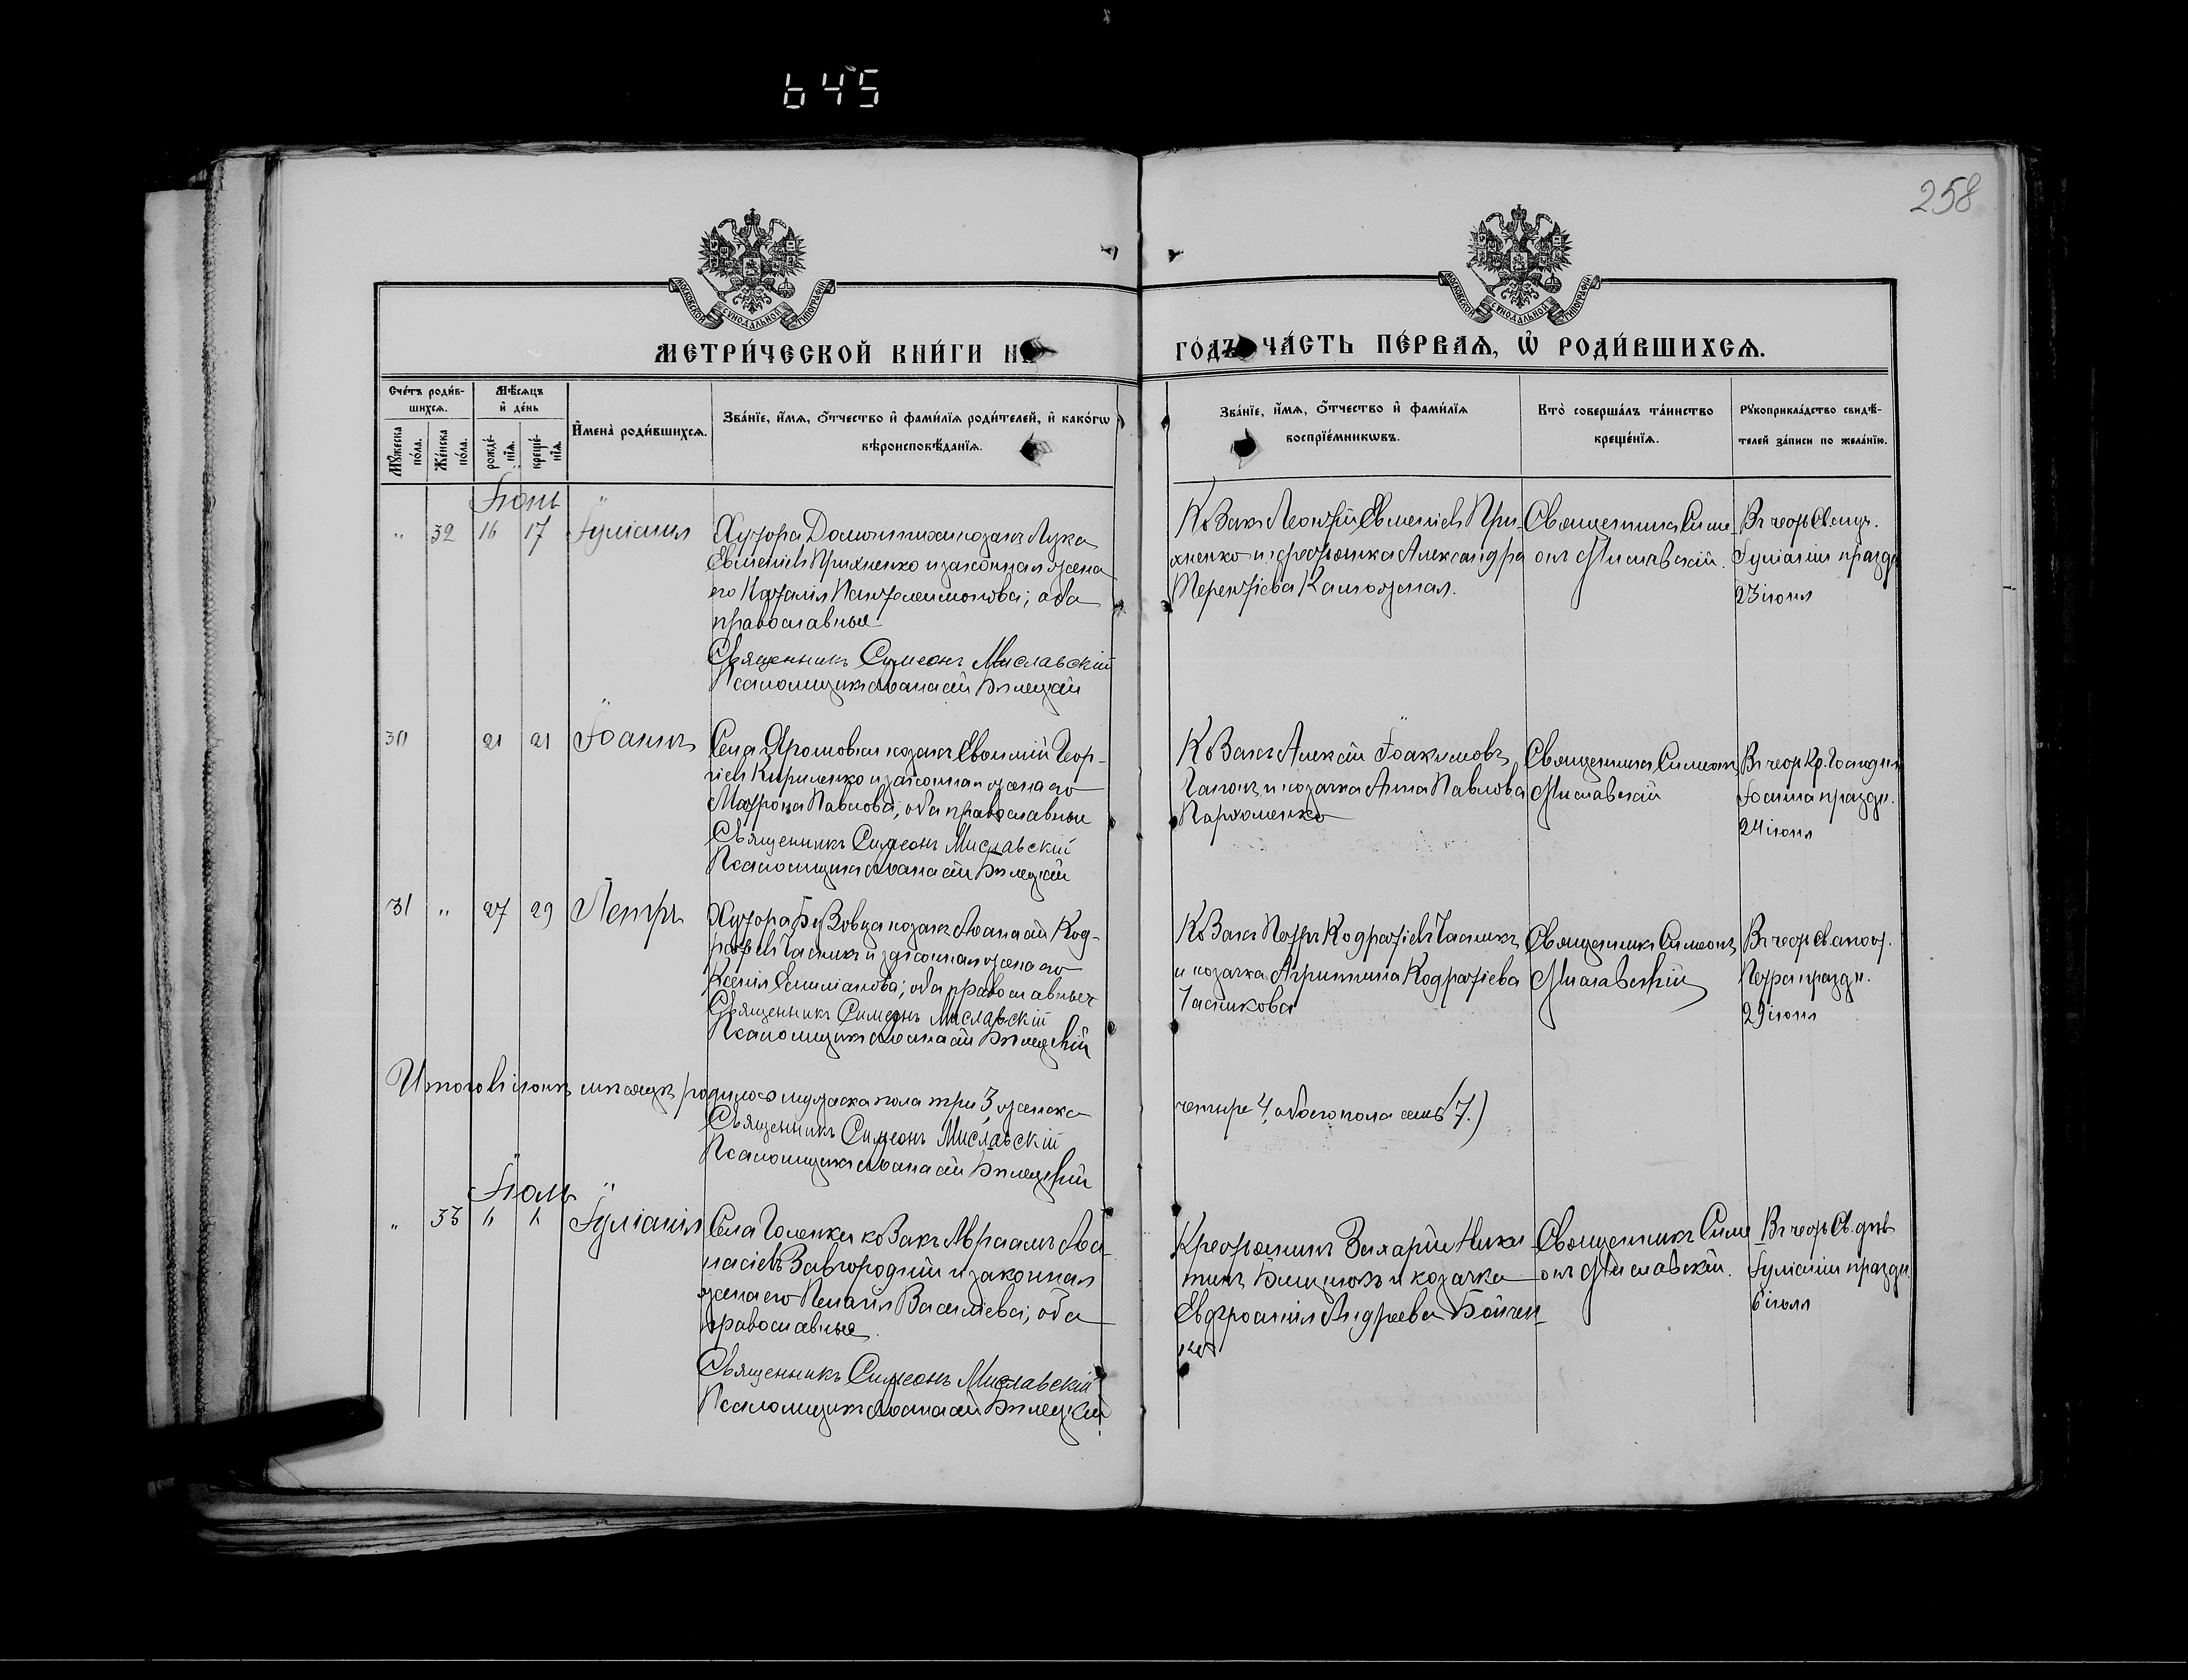 645
258
МОСКОВСКОЙ СѴНОДАЛЬНОЙ ТИПОГРАФІИ
МОСКОВСКОЙ СѴНОДАЛЬНОЙ ТИПОГРАФІИ
МЕТРИ́ЧЕСКОЙ КНИ́ГИ НА
ГО́ДЪ ЧА́СТЬ ПЕ́РВАѦ, Ѡ РОДИ́ВШИХСѦ.
Сче́тъ роди́в-
шихсѧ.
Мꙋ́жеска
по́ла.
Же́нска
по́ла.
Мѣ́сѧцъ
и҆ де́нь
рожде́-
нїѧ.
креще́-
нїѧ.
И҆мена̀ роди́вшихсѧ.
Зва́нїе, и҆́мѧ, ѻ҆́тчество и҆ фами́лїѧ роди́телей, и҆ како́гѡ
вѣроисповѣ́данїѧ.
Зва́нїе, и҆́мѧ, ѻ҆́тчество и҆ фами́лїѧ
воспрїе́мникѡвъ.
Кто̀ соверша́лъ та́инство
креще́нїѧ.
Рꙋкоприкла́дство свидѣ́-
телей за́писи по жела́нїю.
Іюнь
" 32 16 17 Іуліанія
Хутора козакъ Лука
Евменіевъ Прихненко и законная жена
его Наталія Пантелеимонова; оба
православные
Священникъ Симеонъ Миславскій
Псаломщикъ Аѳанасій Билецкій
Козакъ Леонтій Евменіевъ При-
хненко и крестьянка Александра
Терентіева
Священникъ Симе-
онъ Миславскій.
Въ честь Св. муч.
Іуліаніи празд.
23 іюня
30 21 21 Іоаннъ
Села Яроповки козакъ Евѳимій Геор-
гіевъ Кириленко и законная жена его
Матрона Павлова; оба православные
Священникъ Симеонъ Миславскій
Псаломщикъ Аѳанасій Билецкій
Козакъ Алексій Іоакимовъ
Гапонъ и козачка Анна Павлова
Пархоменко
Священникъ Симеонъ
Миславскій
Въ честь Кр. Господня
Іоанна праздн.
24 іюня
31 " 27 29 Петръ
Хутора козакъ Аѳанасій Код-
ратіевъ Часникъ и законная жена его
Ксенія оба православные
Священникъ Симеонъ Миславскій
Псаломщикъ Аѳанасій Билецкій
Козакъ Петръ Кодратіевъ Часникъ
и козачка Агриппина Кодратіева
Часникова
Священникъ Симеонъ
Миславскій
Въ честь Св. апост.
Петра праздн.
29 іюня
Итого въ іюнѣ мѣсяцѣ родилось мужеска пола три 3, женска
четыре 4, обоего пола семь (7.)
Священникъ Симеонъ Миславскій
Псаломщикъ Аѳанасій Билецкій
Іюль
" 33 Іуліанія
Села Голенки козакъ Авраамъ Аѳа-
насіевъ Завгородній и законная
жена его Пелагія Василіева; оба
православные.
Священникъ Симеонъ Миславскій
Псаломщикъ Аѳанасій Билецкій
Крестьянинъ Захарій Ники-
тинъ и козачка
Евфросинія Андреева Бойчен-
ко
Священникъ Симе-
онъ Миславскій.
Въ честь Св. дѣв.
Іуліаніи праздн.
6 іюля